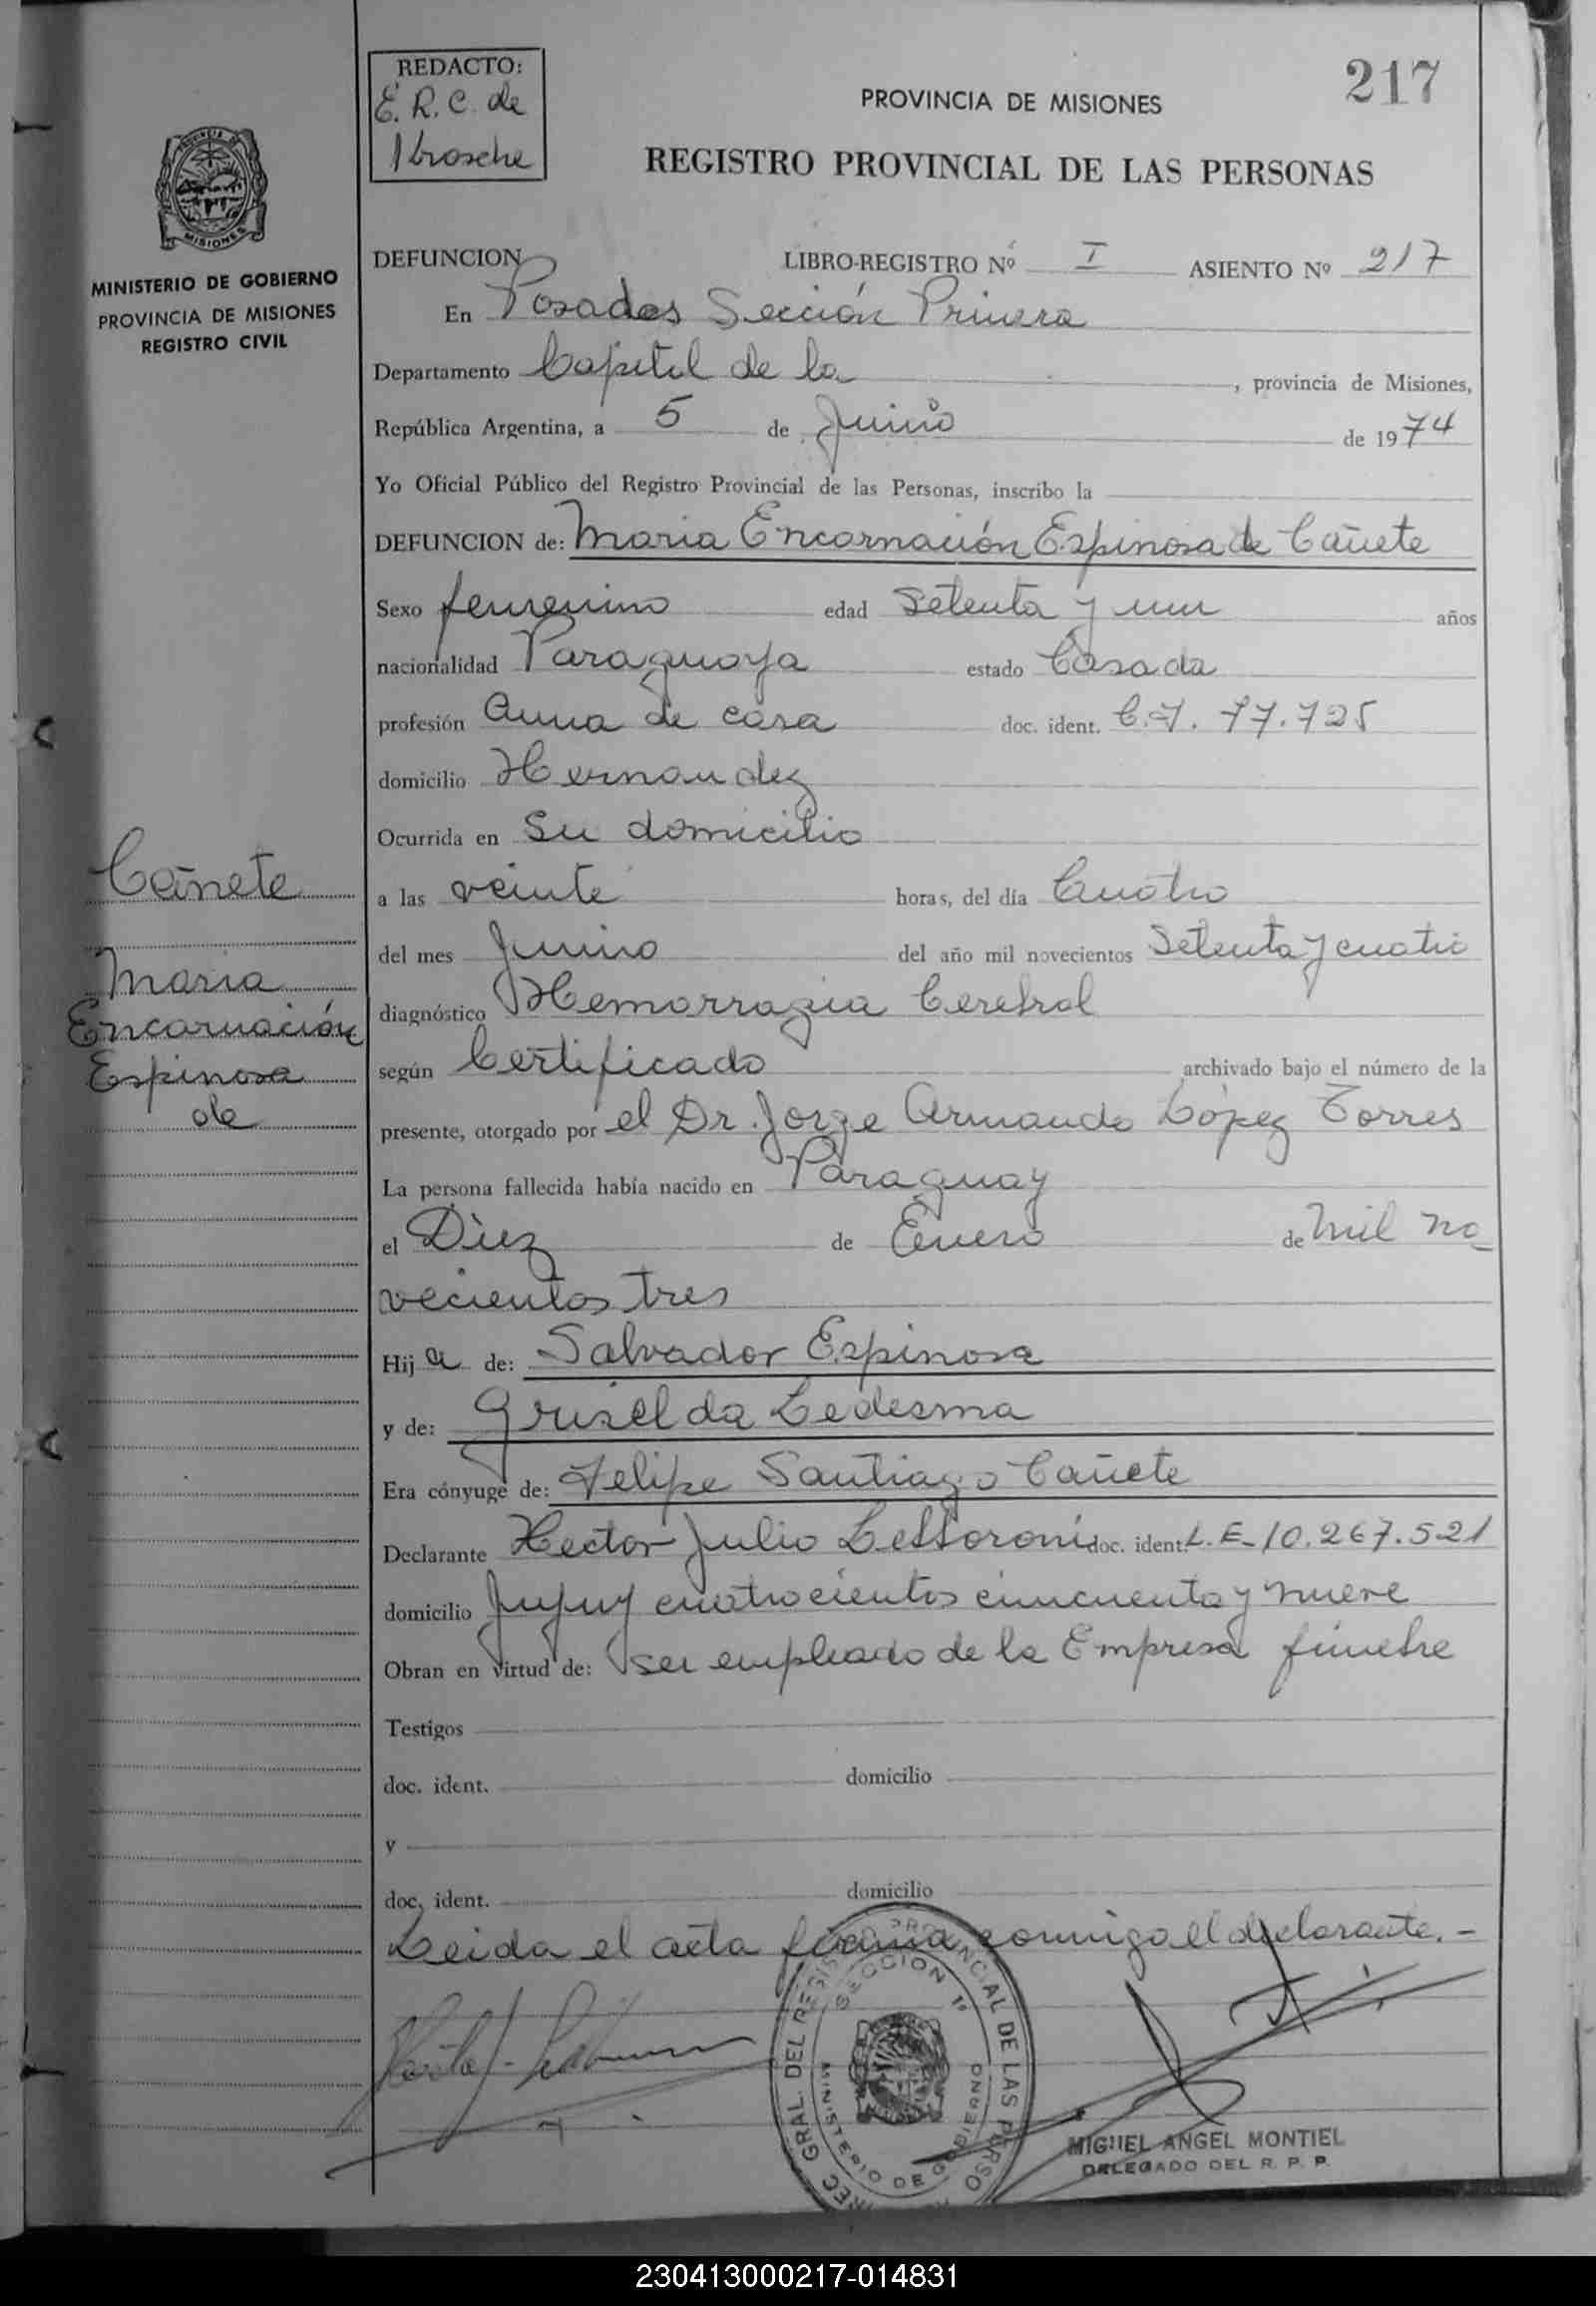 217
REDACTO:
E. R. C. de
PROVINCIA DE MISIONES
REGISTRO PROVINCIAL DE LAS PERSONAS
MISIONES
MINISTERIO DE GOBIERNO
PROVINCIA DE MISIONES
REGISTRO CIVIL
DEFUNCION LIBRO-REGISTRO Nº I ASIENTO Nº 217
En Posadas Sección Primera
Departamento Capital de la , provincia de Misiones,
República Argentina, a 5 de Junio de 1974
Yo Oficial Público del Registro Provincial de las Personas, inscribo la
DEFUNCION de: Maria Encarnación Espinosa de Cañete
Sexo femenino edad Setenta y un años
nacionalidad Paraguaya estado Casada
profesión Ama de casa doc. ident. C.I. 77.725
domicilio Hernandez
Ocurrida en Su domicilio
a las veinte horas, del día Cuatro
del mes Junio del año mil novecientos Setenta y cuatro
diagnóstico Hemorragia Cerebral
según Certificado archivado bajo el número de la
presente, otorgado por el Dr. Jorge Armando López Torres
La persona fallecida había nacido en Paraguay
el Diez de Enero de Mil no_
vecientos tres
Hija de: Salvador Espinosa
y de: Griselda Ledesma
Era cónyuge de: Felipe Santiago Cañete
Declarante Hector Julio doc. ident. L.E- 10.267.521
domicilio Jujuy cuatrocientos cincuenta y nueve
Obran en virtud de: ser empleado de la Empresa fúnebre
Testigos
doc. ident. domicilio
y
doc. ident. domicilio
Leida el acta firma conmigo el declarante.-
Cañete
Maria
Encarnación
Espinosa
de
SECCION 1ª
MINISTERIO DE GOBIERNO
MIGUEL ANGEL MONTIEL
DELEGADO DEL R. P. P.
230413000217-014831